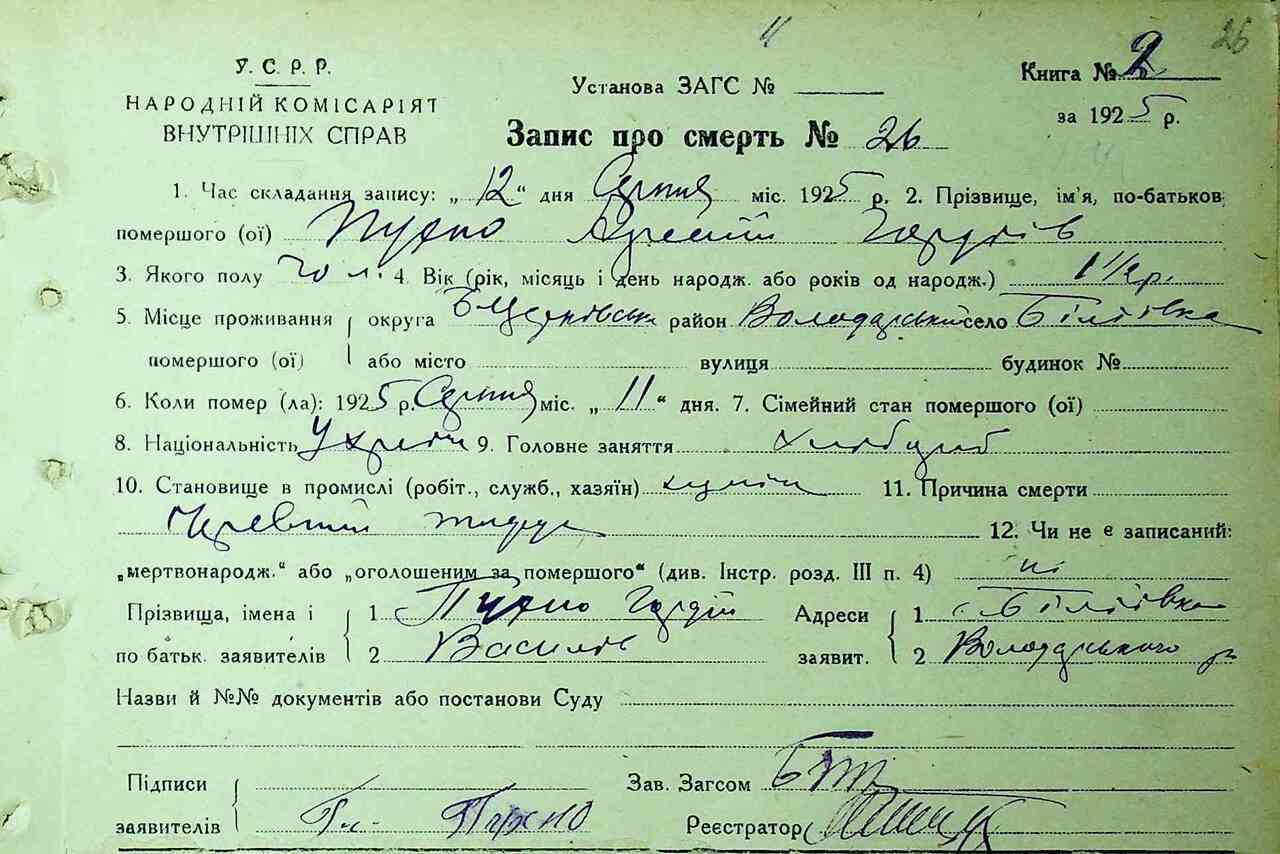 26
У. С. Р. Р.
НАРОДНІЙ КОМІСАРІЯТ
ВНУТРІШНІХ СПРАВ
Установа ЗАГС №
Книга № 2
за 1925 р.
Запис про смерть № 26
1. Час складання запису: „12“ дня Серпня міс. 1925 р. 2. Прізвище, ім'я, по-батьков
помершого (ої) Гордіїв
3. Якого полу чол. 4. Вік (рік, місяць і день народж. або років од народж.)
5. Місце проживання округа Б-Церківська район Володарський село Біліївка
помершого (ої) або місто вулиця будинок №
6. Коли помер (ла): 1925 р. Серпня міс. „11“ дня. 7. Сімейний стан помершого (ої)
8. Національність 9. Головне заняття хлібороб
10. Становище в промислі (робіт., служб., хазяїн) 11. Причина смерти
12. Чи не є записаний:
„мертвонародж.“ або „оголошеним за помершого“ (див. Інстр. розд. III п. 4) ні
Прізвища, імена і 1 Гордій Адреси 1 с. Біліївка
по батьк. заявителів 2 Василів заявит. 2 Володарського р
Назви й №№ документів або постанови Суду
Підписи Зав. Загсом
заявителів Реєстратор